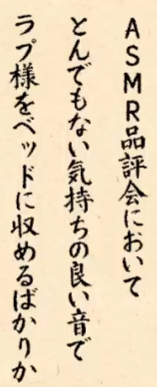 ASMR品評会において
とんでもない気持ちの良い音で
ラプ様をベッドに収めるばかりか